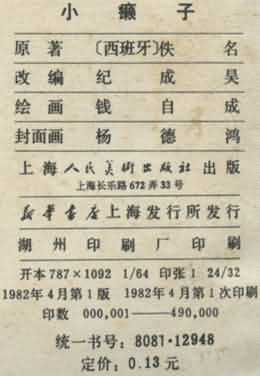 小癞子
原著〔西班牙〕佚名
改编 纪成昊
绘画 钱自成
封面画 杨德鸿
上海人民美術出版社出版
上海长乐路672弄33号
新华書店上海发行所发行
湖州印刷厂印刷
开本787×1092 1/64 印张1 24/32
1982年4月第1版 1982年4月第1次印刷
印数 000,001——490,000
统一书号：8081·12948
定价：0.13元